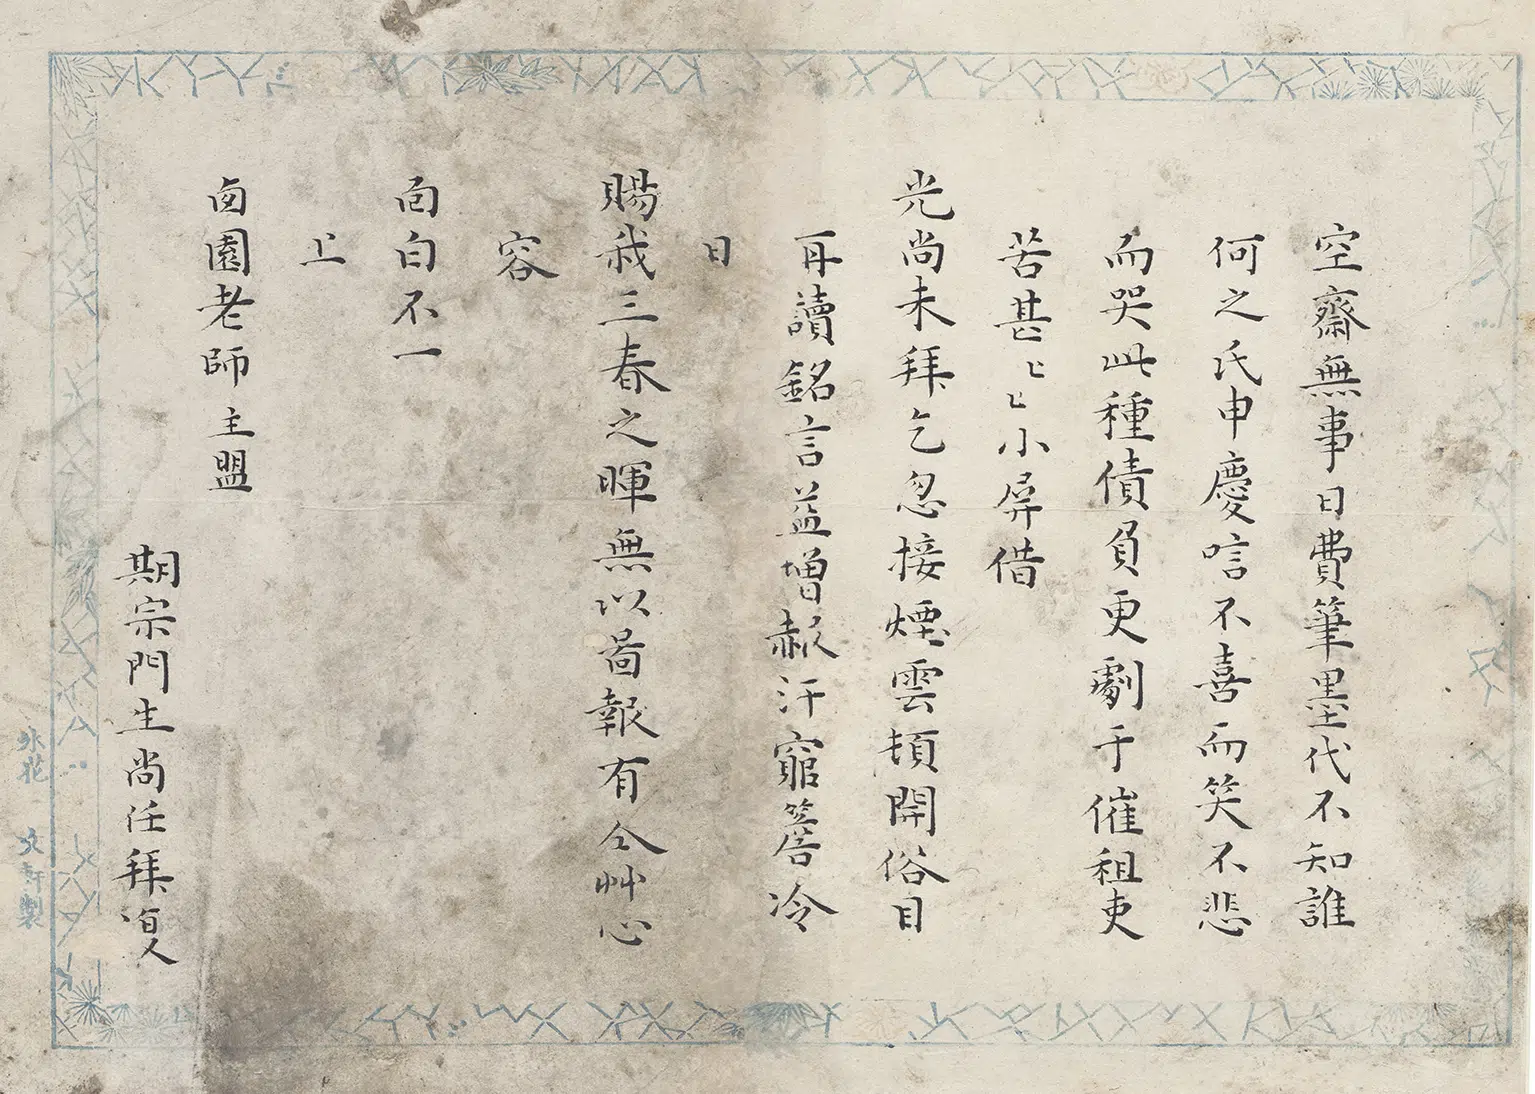 空齋無事日費筆墨代不知誰
何之氏申慶唁不喜而笑不悲
而哭此種債負更劇于催租吏
苦甚匕匕小屏借
光尚未拜乞忽接煙雲頓開俗目
再讀銘言益增赧汗竆簷冷
日
賜我三春之暉無以啚報有仝艸心
容
靣白不一
上
園老師主盟
期宗門生尚任拜
氷花 文軒製